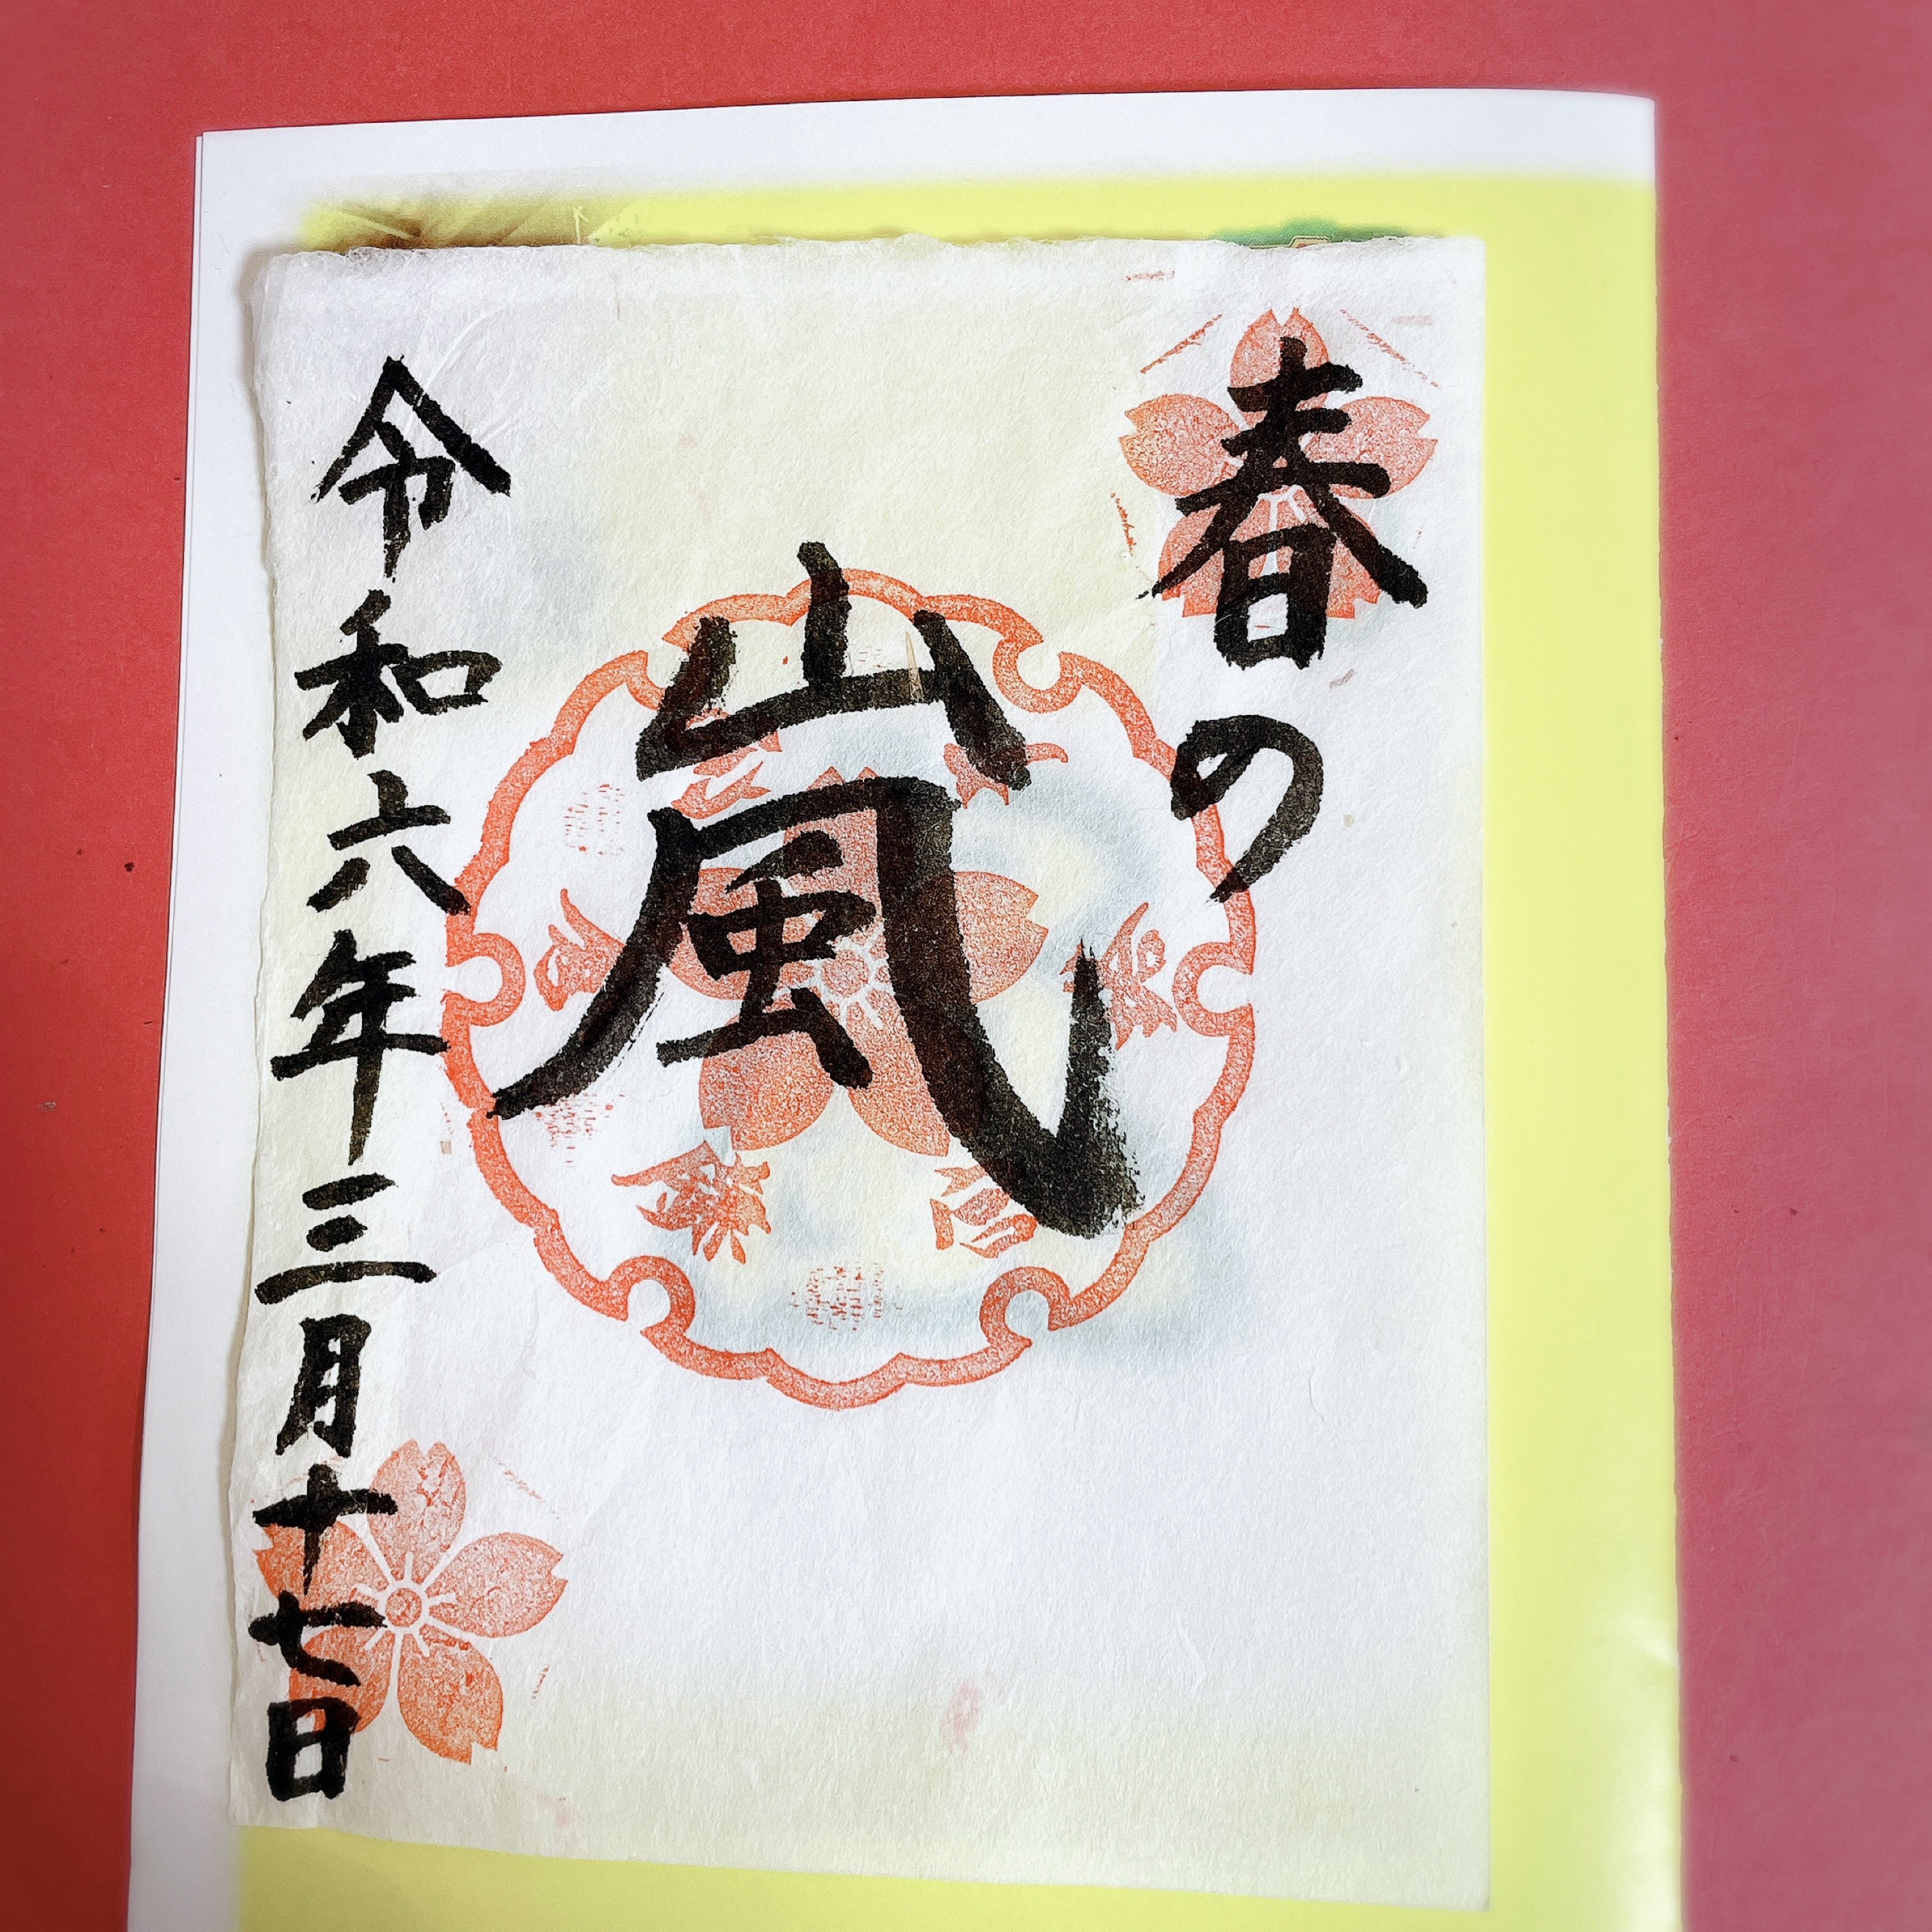 春の
嵐
令和六年三月十七日